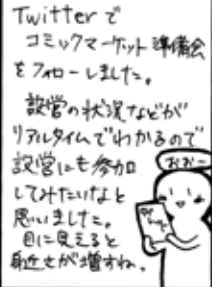 Twitterで
コミックマーケット準備会
をフォローしました。
設営の状況などが
リアルタイムでわかるので
設営にも参加
してみたいなと
思いました。
目に見えると
身近さが増すね。
おおー